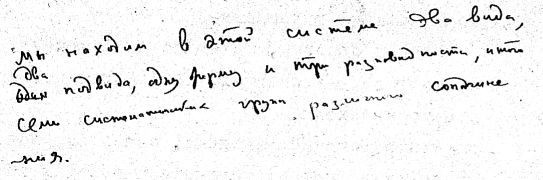 мы находим в этой системе два вида,
два
подвида, одну форму и три разновидности, итого
семь систематических групп различного соподчине
ния.